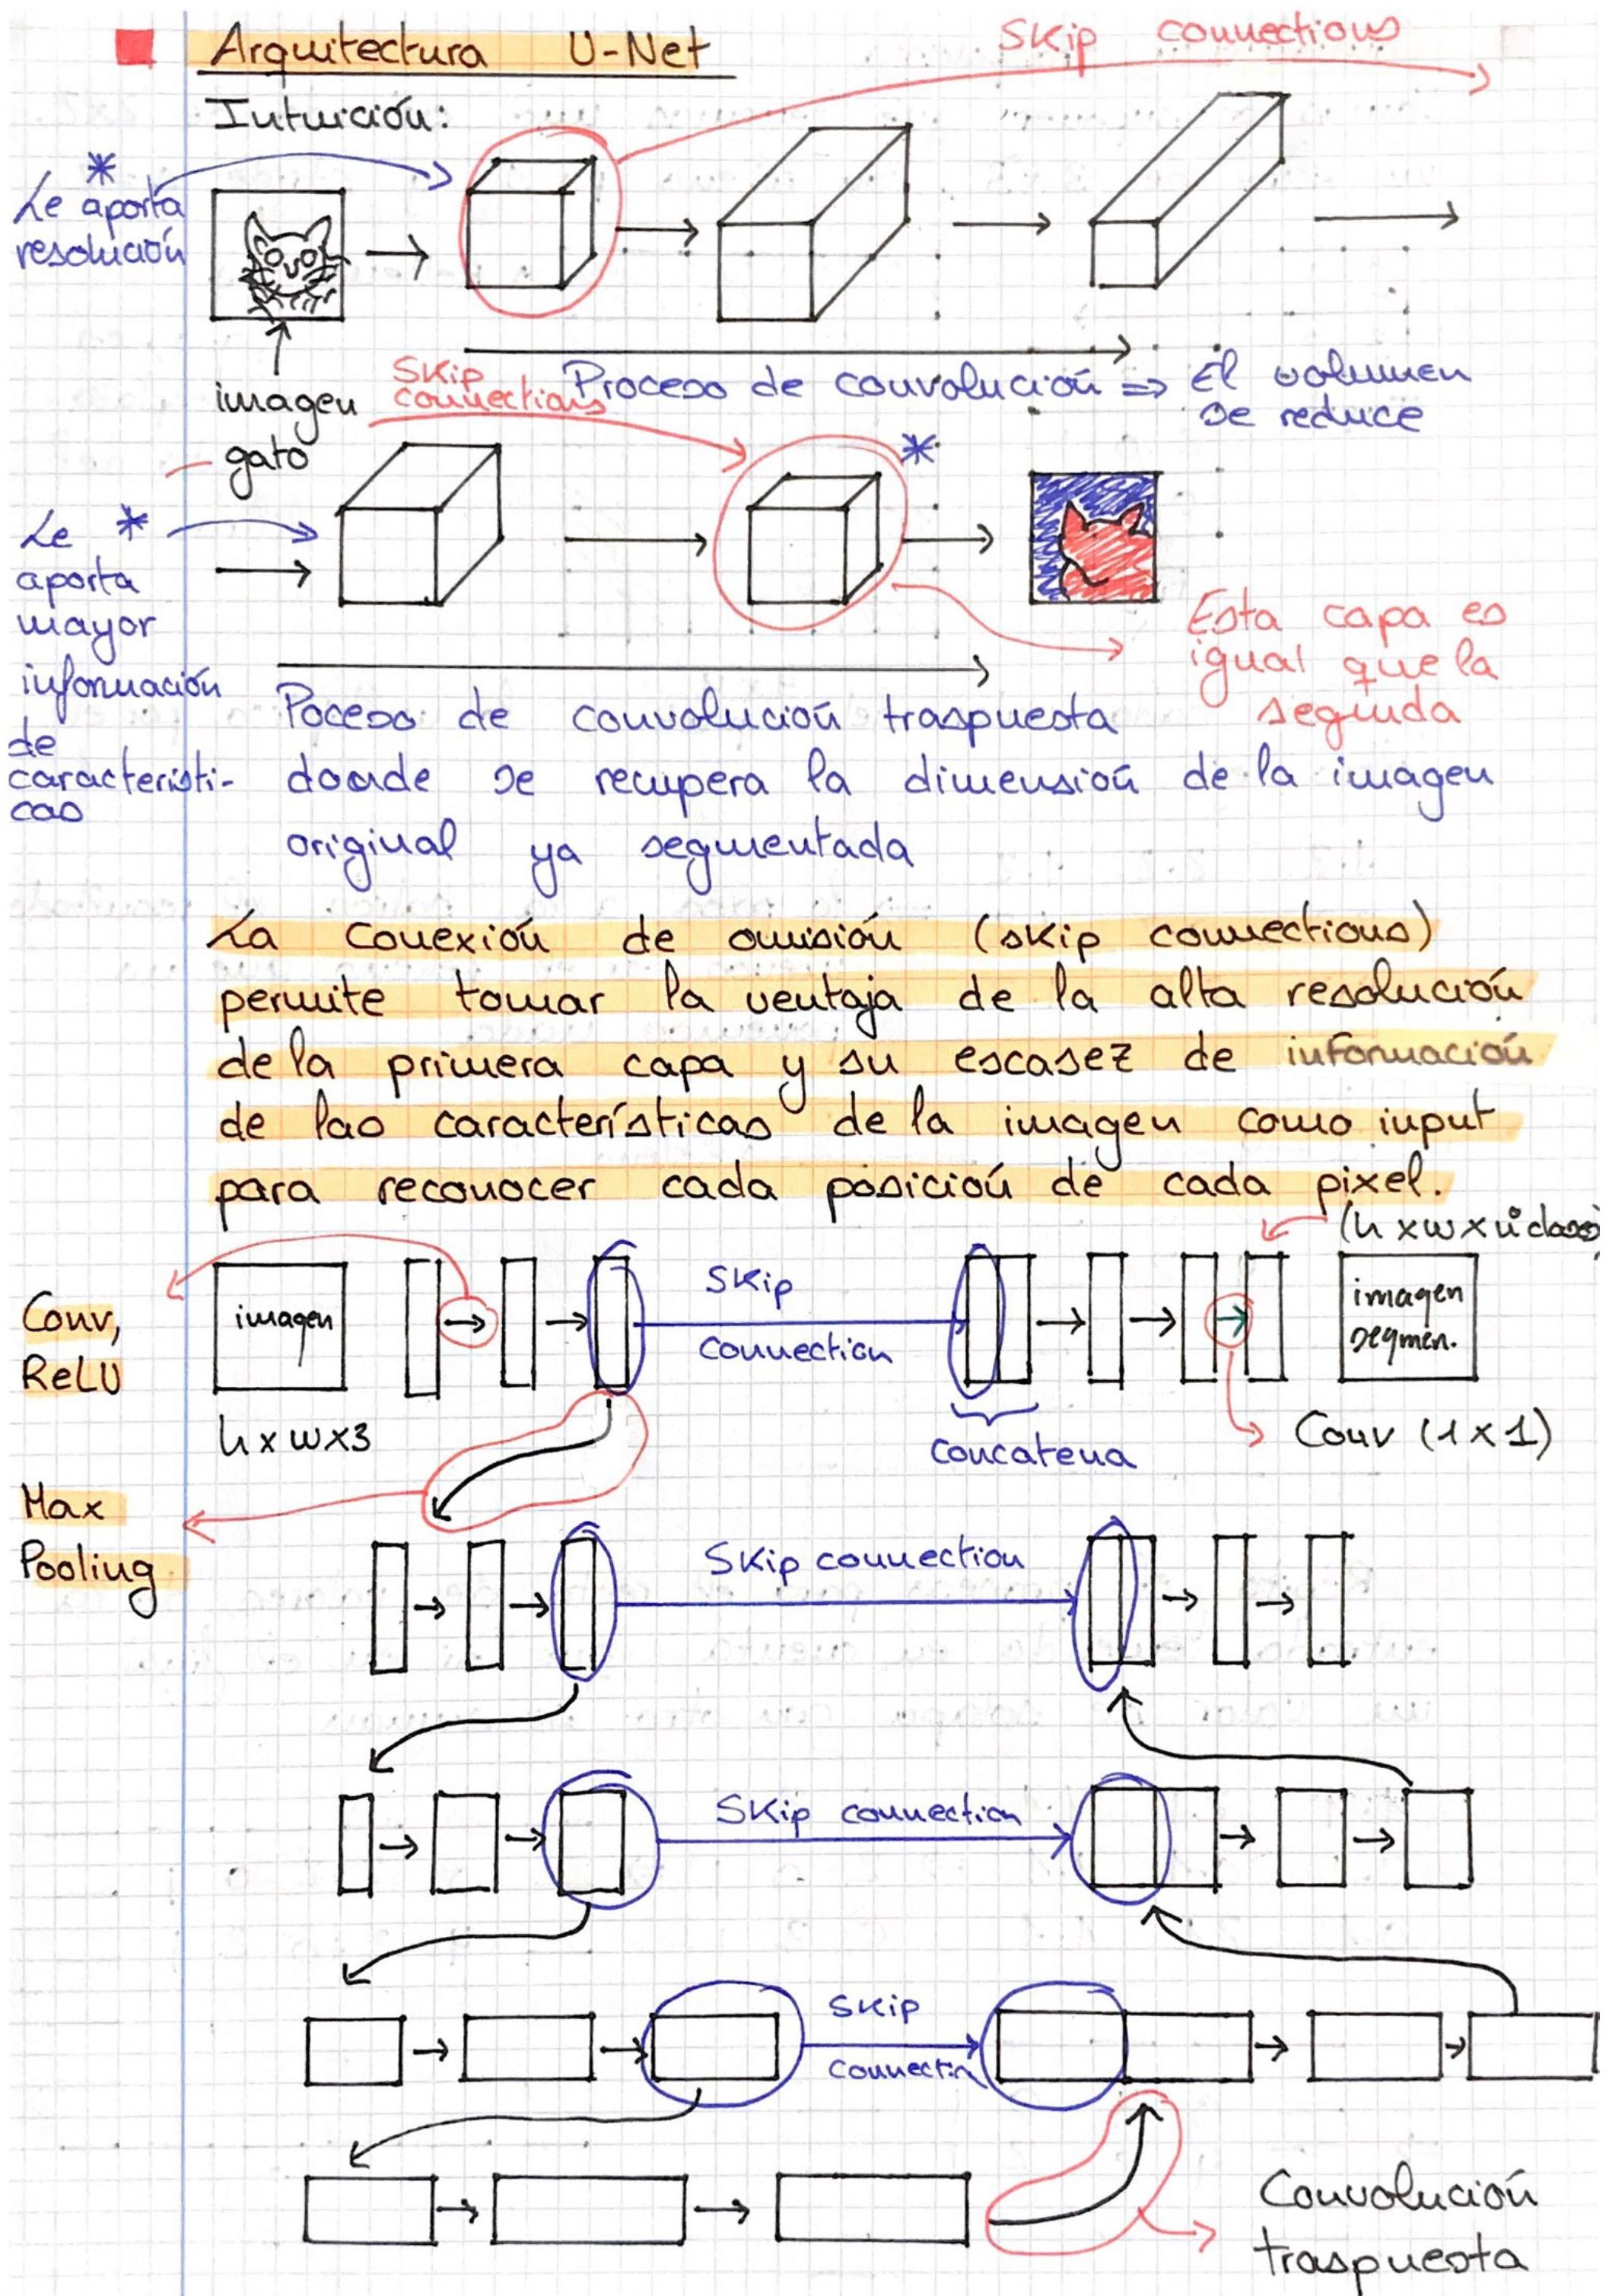 Arquitectura U-Net
Skip connections
Intuición:
*
Le aporta
resolución
imagen
gato
Skip
connections
Proceso de convolución => El volumen
se reduce
*
Le *
aporta
mayor
información
de
característi-
cas
Esta capa es
igual que la
segunda
Poceso de convolución traspuesta
doonde se recupera la dimensión de la imagen
original ya segmentada
La conexión de omisión (skip connections)
permite tomar la ventaja de la alta resolución
de la primera capa y su escasez de información
de las características de la imagen como input
para reconocer cada posición de cada pixel.
(h x w x nº clases)
Conv,
ReLU
imagen
Skip
connection
imagen
segmen.
h x w x 3
concatena
Conv (1 x 1)
Max
Pooling
Skip connection
Skip connection
Skip
connectin
Convolución
traspuesta